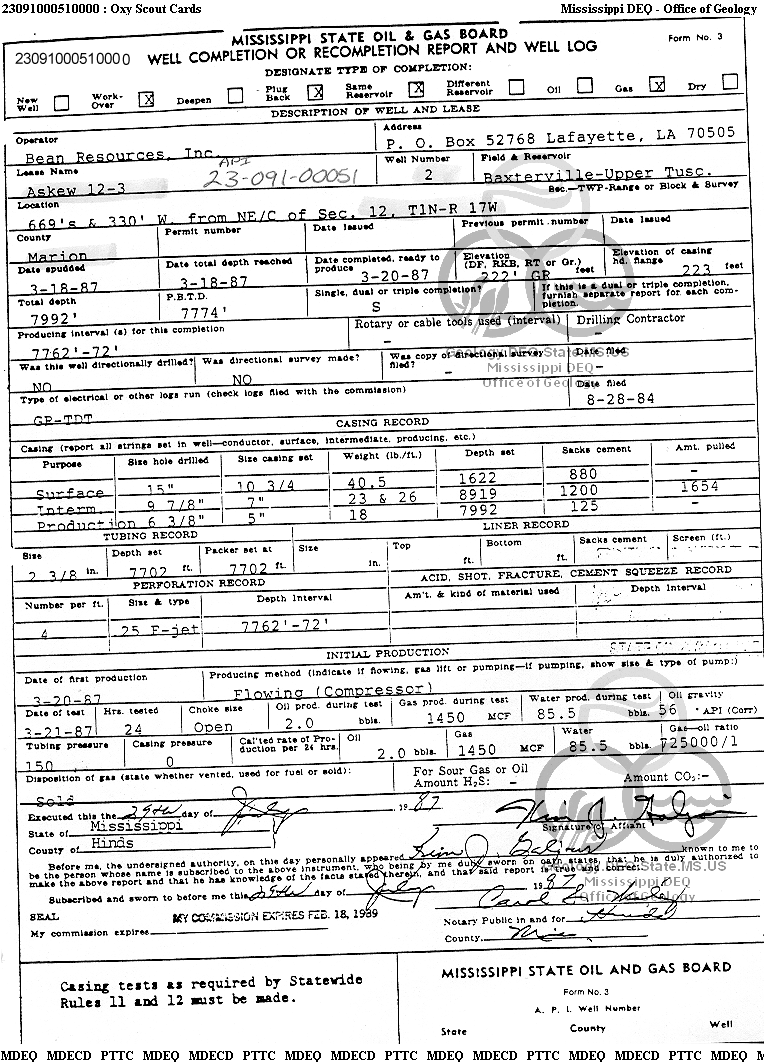 23091000510000 : Oxy Scout Cards Mississippi DEQ - Office of Geology
MISSISSIPPI STATE OIL & GAS BOARD Form No. 3
23091000510000 WELL COMPLETION OR RECOMPLETION REPORT AND WELL LOG
DESIGNATE TYPE OF COMPLETION:
New Well Work-Over X Deepen Plug Back X Same Reservoir X Different Reservoir Oil Gas X Dry
DESCRIPTION OF WELL AND LEASE
Operator Address
Bean Resources, Inc P. O. Box 52768 Lafayette, LA 70505
Lease Name API Well Number Field & Reservoir
Askew 12-3 23-091-00051 2 Baxterville-Upper Tusc.
Location Sec.—TWP-Range or Block & Survey
669's & 330' W. from NE/C of Sec. 12, T1N-R 17W
County Permit number Date Issued Previous permit number Date Issued
Marion
Date spudded Date total depth reached Date completed, ready to produce Elevation (DF, RKB, RT or Gr.) Elevation of casing hd. flange
3-18-87 3-18-87 3-20-87 222' GR feet 223 feet
Total depth P.B.T.D. Single, dual or triple completion? If this is a dual or triple completion, furnish separate report for each completion.
7992' 7774' S
Producing interval (s) for this completion Rotary or cable tools used (interval) Drilling Contractor
7762'-72' - -
Was this well directionally drilled? Was directional survey made? Was copy of directional survey filed? Date filed
NO NO - -
Type of electrical or other logs run (check logs filed with the commission) Date filed
GR-TDT 8-28-84
CASING RECORD
Casing (report all strings set in well—conductor, surface, intermediate, producing, etc.)
Purpose Size hole drilled Size casing set Weight (lb./ft.) Depth set Sacks cement Amt. pulled
Surface 15" 10 3/4 40.5 1622 880 -
Interm. 9 7/8" 7" 23 & 26 8919 1200 1654
Production 6 3/8" 5" 18 7992 125 -
TUBING RECORD LINER RECORD
Size Depth set Packer set at Size Top Bottom Sacks cement Screen (ft.)
2 3/8 in. 7702 ft. 7702 ft. in. ft. ft.
PERFORATION RECORD ACID, SHOT, FRACTURE, CEMENT SQUEEZE RECORD
Number per ft. Size & type Depth Interval Am't. & kind of material used Depth Interval
4 25 F-jet 7762'-72'
INITIAL PRODUCTION
Date of first production Producing method (indicate if flowing, gas lift or pumping—if pumping, show size & type of pump:)
3-20-87 Flowing (Compressor)
Date of test Hrs. tested Choke size Oil prod. during test Gas prod. during test Water prod. during test Oil gravity
3-21-87 24 Open 2.0 bbls. 1450 MCF 85.5 bbls. 56 ° API (Corr)
Tubing pressure Casing pressure Cal'ted rate of Production per 24 hrs. Oil Gas Water Gas—oil ratio
150 0 2.0 bbls. 1450 MCF 85.5 bbls. 725000/1
Disposition of gas (state whether vented, used for fuel or sold): For Sour Gas or Oil Amount H2S: - Amount CO2:-
Sold
Executed this the 29th day of July 1987
State of Mississippi Signature of Affiant
County of Hinds
Before me, the undersigned authority, on this day personally appeared known to me to
be the person whose name is subscribed to the above instrument, who being by me duly sworn on oath states, that he is duly authorized to
make the above report and that he has knowledge of the facts stated therein, and that said report is true and correct.
Subscribed and sworn to before me this 29th day of July 1987
SEAL MY COMMISSION EXPIRES FEB. 18, 1989 Notary Public in and for Hinds
My commission expires County, Miss
Casing tests as required by Statewide
Rules 11 and 12 must be made.
MISSISSIPPI STATE OIL AND GAS BOARD
Form No. 3
A. P. I. Well Number
State County Well
MDEQ MDECD PTTC MDEQ MDECD PTTC MDEQ MDECD PTTC MDEQ MDECD PTTC MDEQ MDECD PTTC MDEQ M